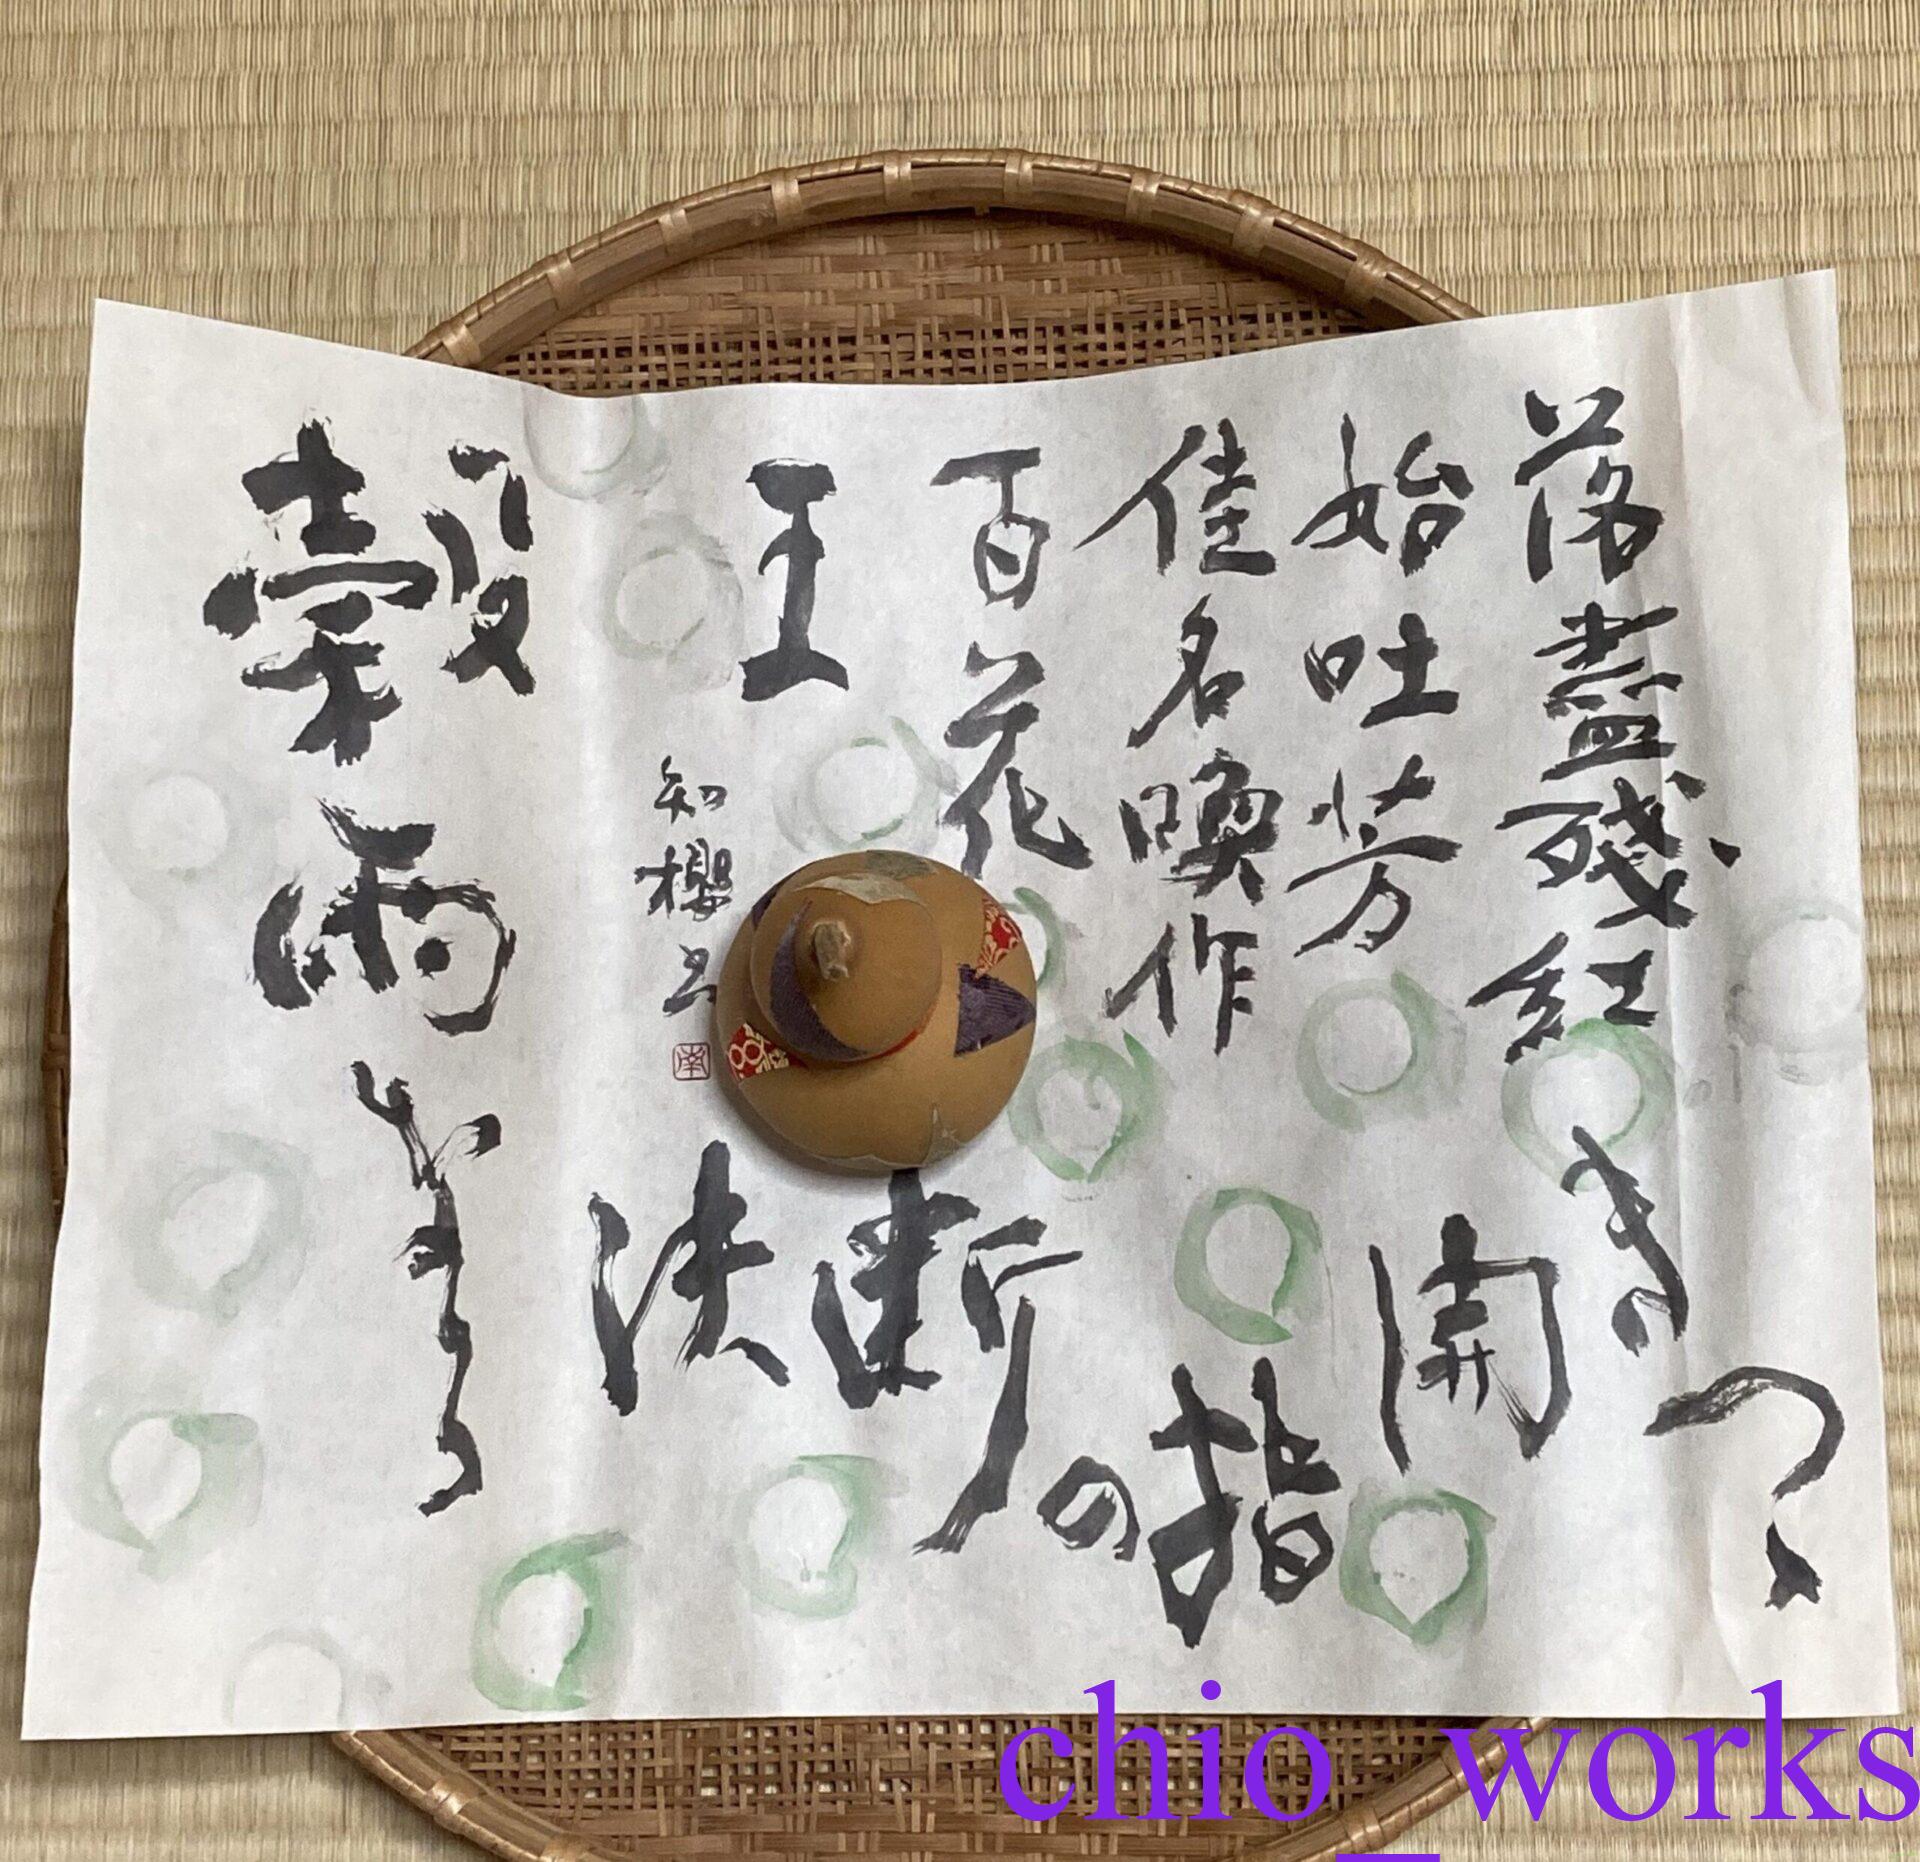 落盡殘紅
始吐芳
佳名喚作
百花
王
知櫻
南
穀雨
決断
の
指
開
きつゝ
chio_works